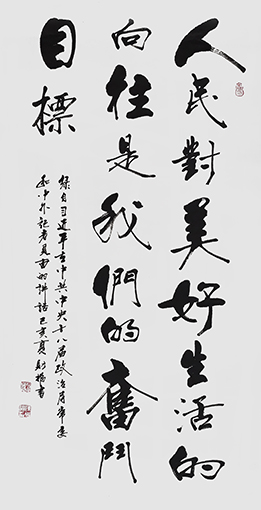 人民對美好生活的
向往是我們的奮鬥
目標
錄自习近平在中共中央十八届政治局常委
和中外記者見面的讲话己亥夏